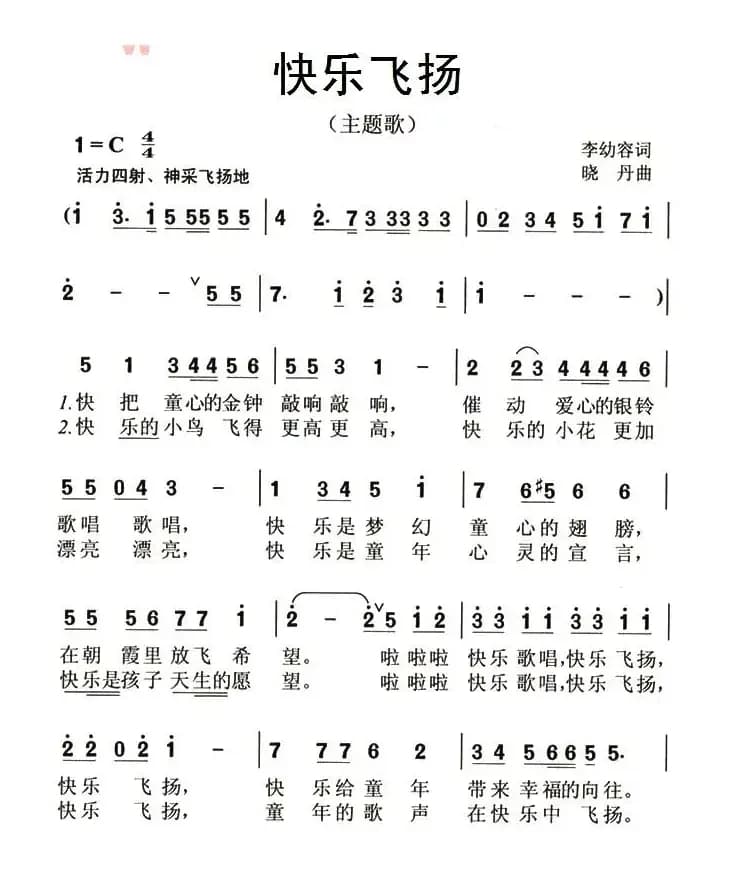 快乐飞扬
（主题歌）
1=C 4/4
李幼容词
活力四射、神采飞扬地
晓 丹曲
(i 3. i 5 55 5 5 | 4 2. 7 3 33 3 3 | 0 2 3 4 5 i 7 i |
2 - - ∨ 5 5 | 7. i 2 3 i | i - - - )|
5 1 3 4 4 5 6 | 5 5 3 1 - | 2 2 3 4 4 4 4 6 |
1.快 把 童心的金钟 敲响敲 响， 催 动 爱心的银铃
2.快 乐的小鸟 飞得 更高更 高， 快 乐的 小花 更加
5 5 0 4 3 - | 1 3 4 5 i | 7 6 #5 6 6 |
歌唱 歌唱， 快 乐是梦 幻 童 心的 翅 膀，
漂亮 漂亮， 快 乐是童 年 心 灵的 宣 言，
5 5 5 6 7 7 i | 2 - 2∨5 i 2 | 3 3 i i 3 3 i i |
在朝 霞里 放飞 希 望。 啦 啦啦 快乐 歌唱，快乐 飞扬，
快乐是孩子 天生的愿 望。 啦 啦啦 快乐 歌唱，快乐 飞扬，
2 2 0 2 i - | 7 7 7 6 2 | 3 4 5 6 6 5 5. |
快乐 飞 扬， 快 乐给童 年 带来 幸福的向往。
快乐 飞 扬， 童 年的歌 声 在快乐中 飞扬。